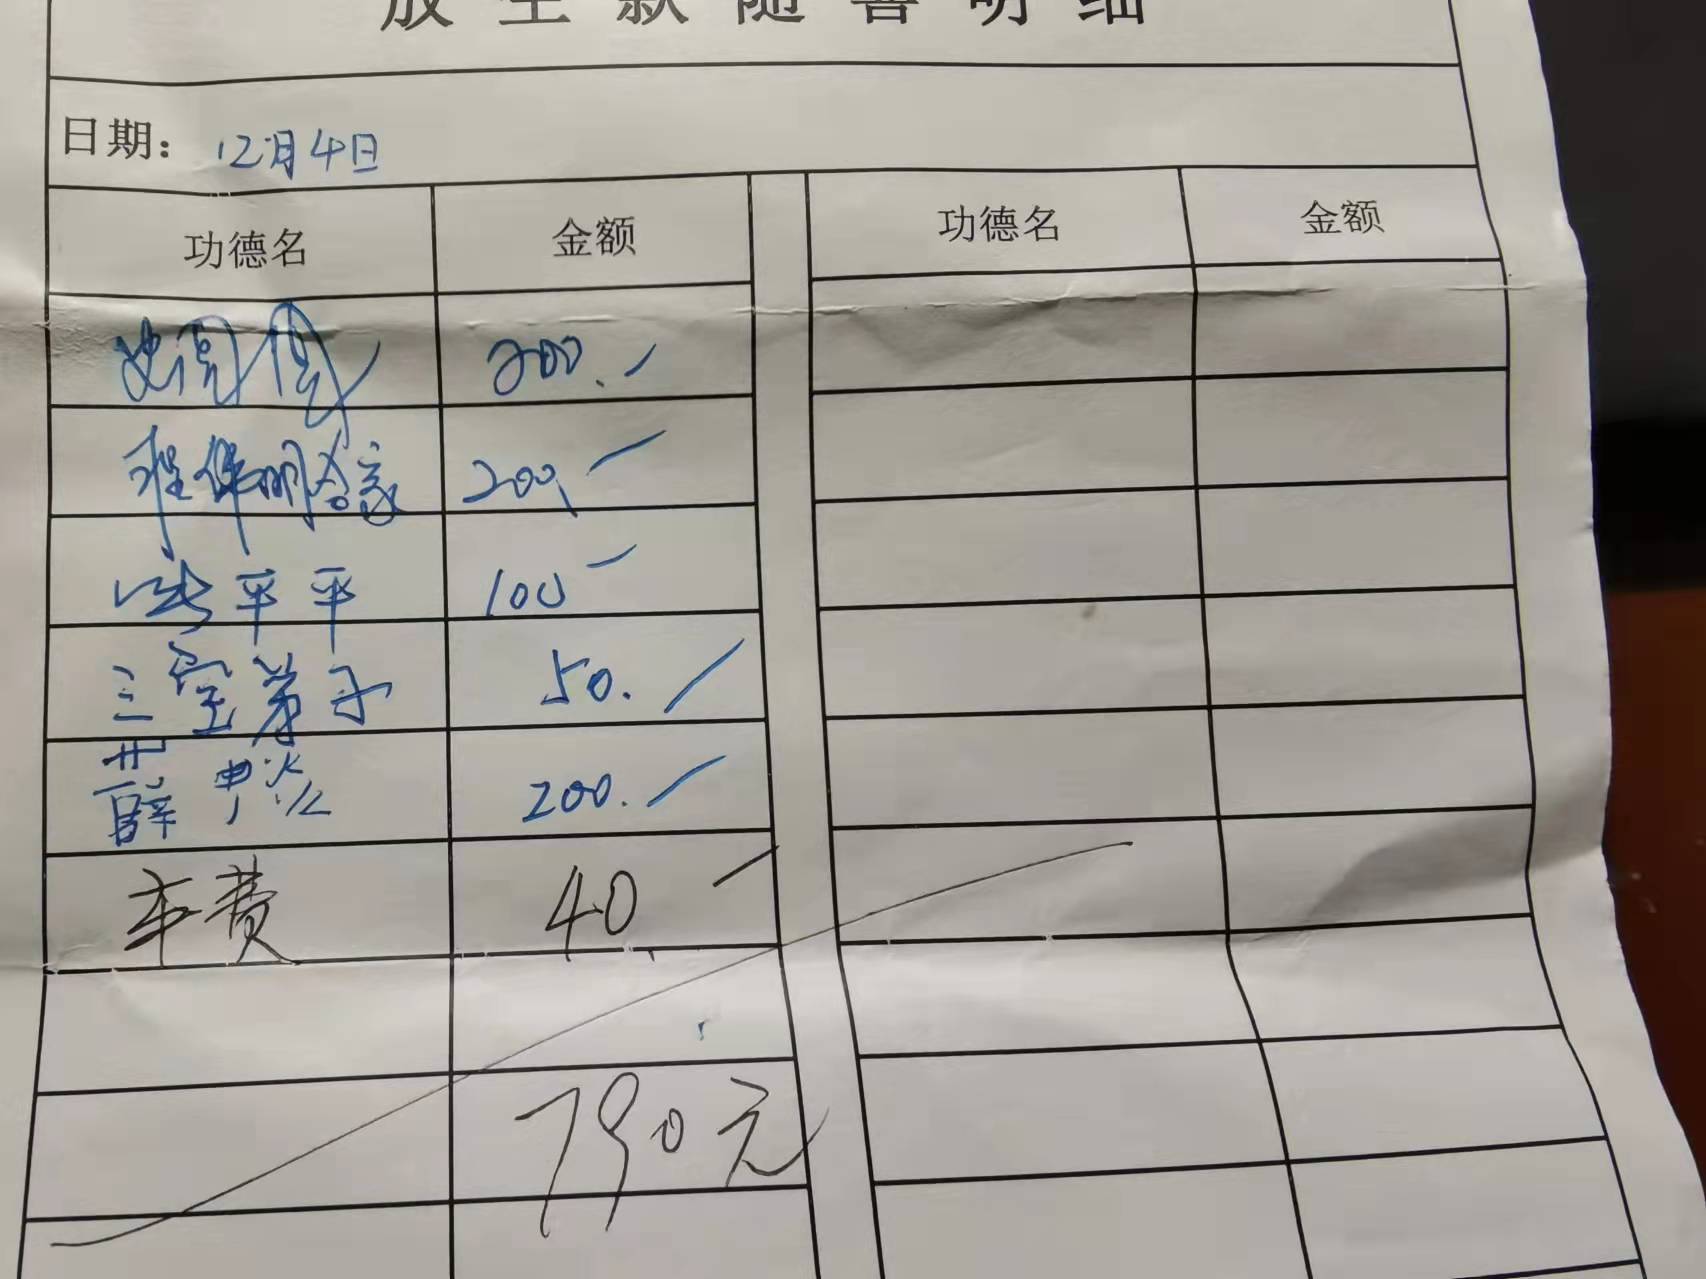 放生款随喜明细
日期：12月4日
功德名 金额 功德名 金额
史圆圆 200.
程伟明合家 200
平平 100
三宝弟子 50.
薛 200.
车费 40
790元